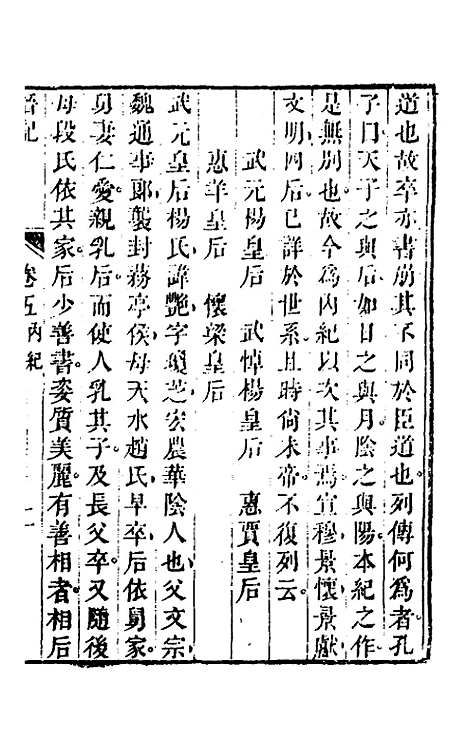 道也故卒亦書崩其不同於臣道也列傳何為者孔
子曰天子之與后如日之與月陰之與陽本紀之作
是無別也故今為內紀以次其事焉宣穆景懷景獻
文明四后已詳於世系且時尚未帝不復列云
武元楊皇后　武悼楊皇后　惠賈皇后
惠羊皇后　懷梁皇后
武元皇后楊氏諱艷字瓊芝宏農華陰人也父文宗
魏通事郎襲封蓩亭侯母天水趙氏早卒后依舅家
舅妻仁愛親乳后而使人乳其子及長父卒又隨後
母段氏依其家后少善書姿質美麗有善相者相后
晉記　卷五內紀